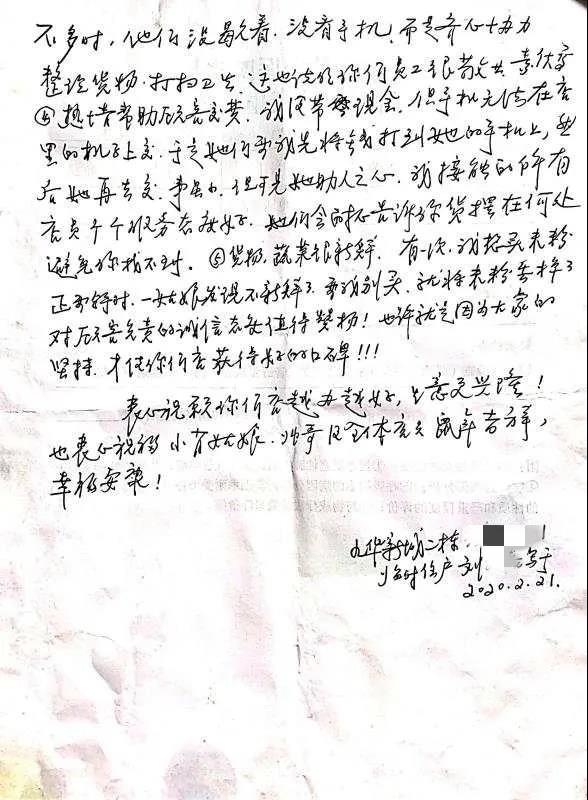 不多时，他们没歇着，没看手机，而是齐心协力
整理货物，打扫卫生，这也使的你们员工很敬业 素
④热情帮助顾客交费，我没带 现金，但手机无法在店
里的机子上交，于是她们要我先将钱打到她的手机上，然
后她再去交，事虽小，但可见她助人之心，我接触的所有
店员个个服务态度好，她们会 告诉你货摆在何处
避免你找不到。⑤货物，蔬菜很新鲜，有一次，我想买米粉
正 时，一姑娘 说不新鲜了，要我别买，就将米粉丢掉了
对顾客负责的诚信态度值得赞扬！也许就是因为大家的
坚持，才使你们店获得好的口碑！！！
衷心祝愿你们店越办越好，生意更兴隆！
也衷心祝福小 姑娘，帅哥及全体店员 鼠年吉祥，
幸福安康！
九华新城二栋
临时住户 刘 写于
2020.2.21.